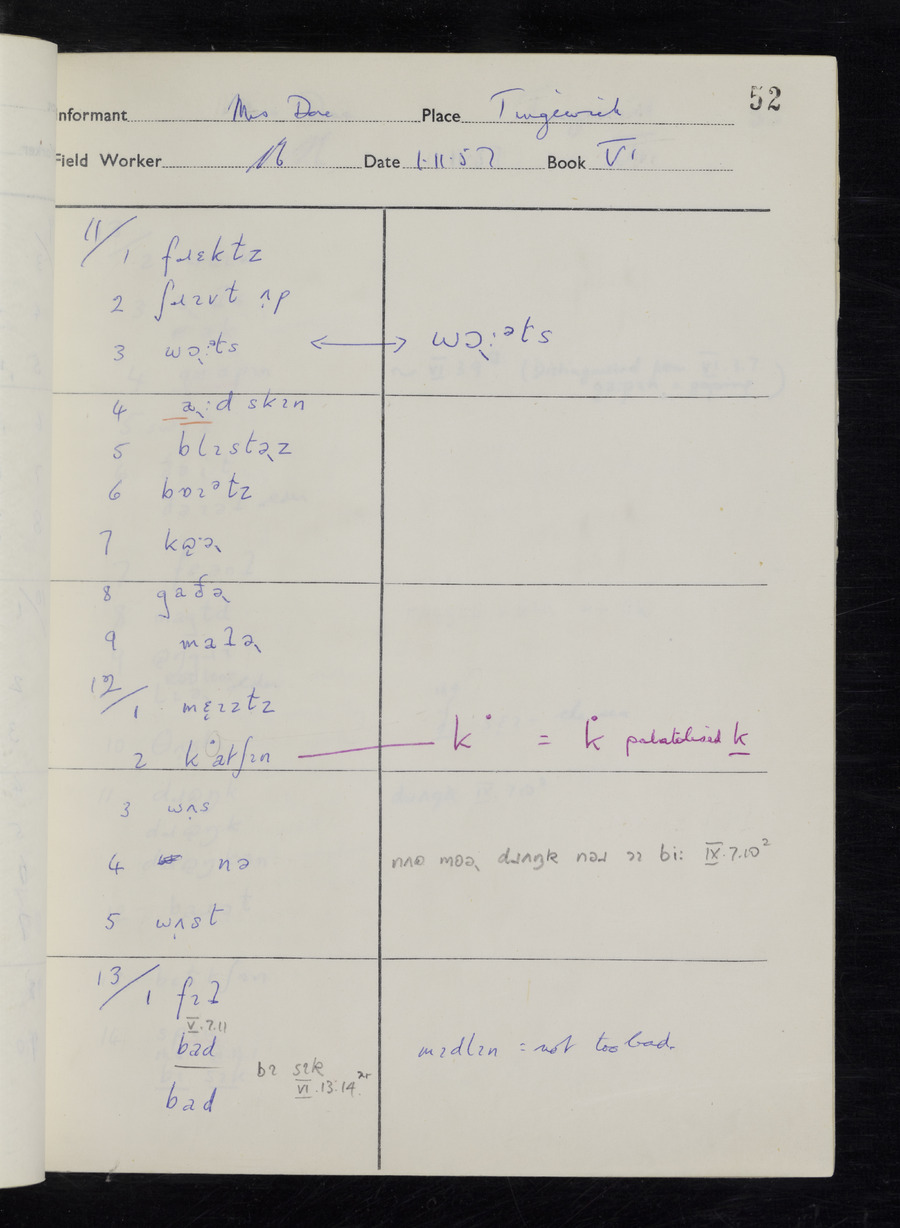 52
Informant Mrs Dore Place Tingewick
Field Worker Date 1.11.57 Book VI
11/1 fɹɛktz
2 ʃɹɪvt ʌ̣p
3 wɔ̨:ᵊts ⟷ wɔ̨:ᵊts
4 :d skɪn
5 blɪstə̨z
6 bɒɪᵊtz
7
8 gaðə̨
9 matə̨
12/1 mɛ̨ɪztz
2 k˙atʃɪn — k˙ = k̇ palatalised k
3 wʌ̣s
4 nə nʌə mʊə̨ dɹʌŋk nəɹ ɪ bi: IX.7.10²
5 wʌ̣st
13/1 fɪɫ
V.7.11
bad mɪdlɪn = not too bad.
bɪ sɪk
VI.13.14
bad